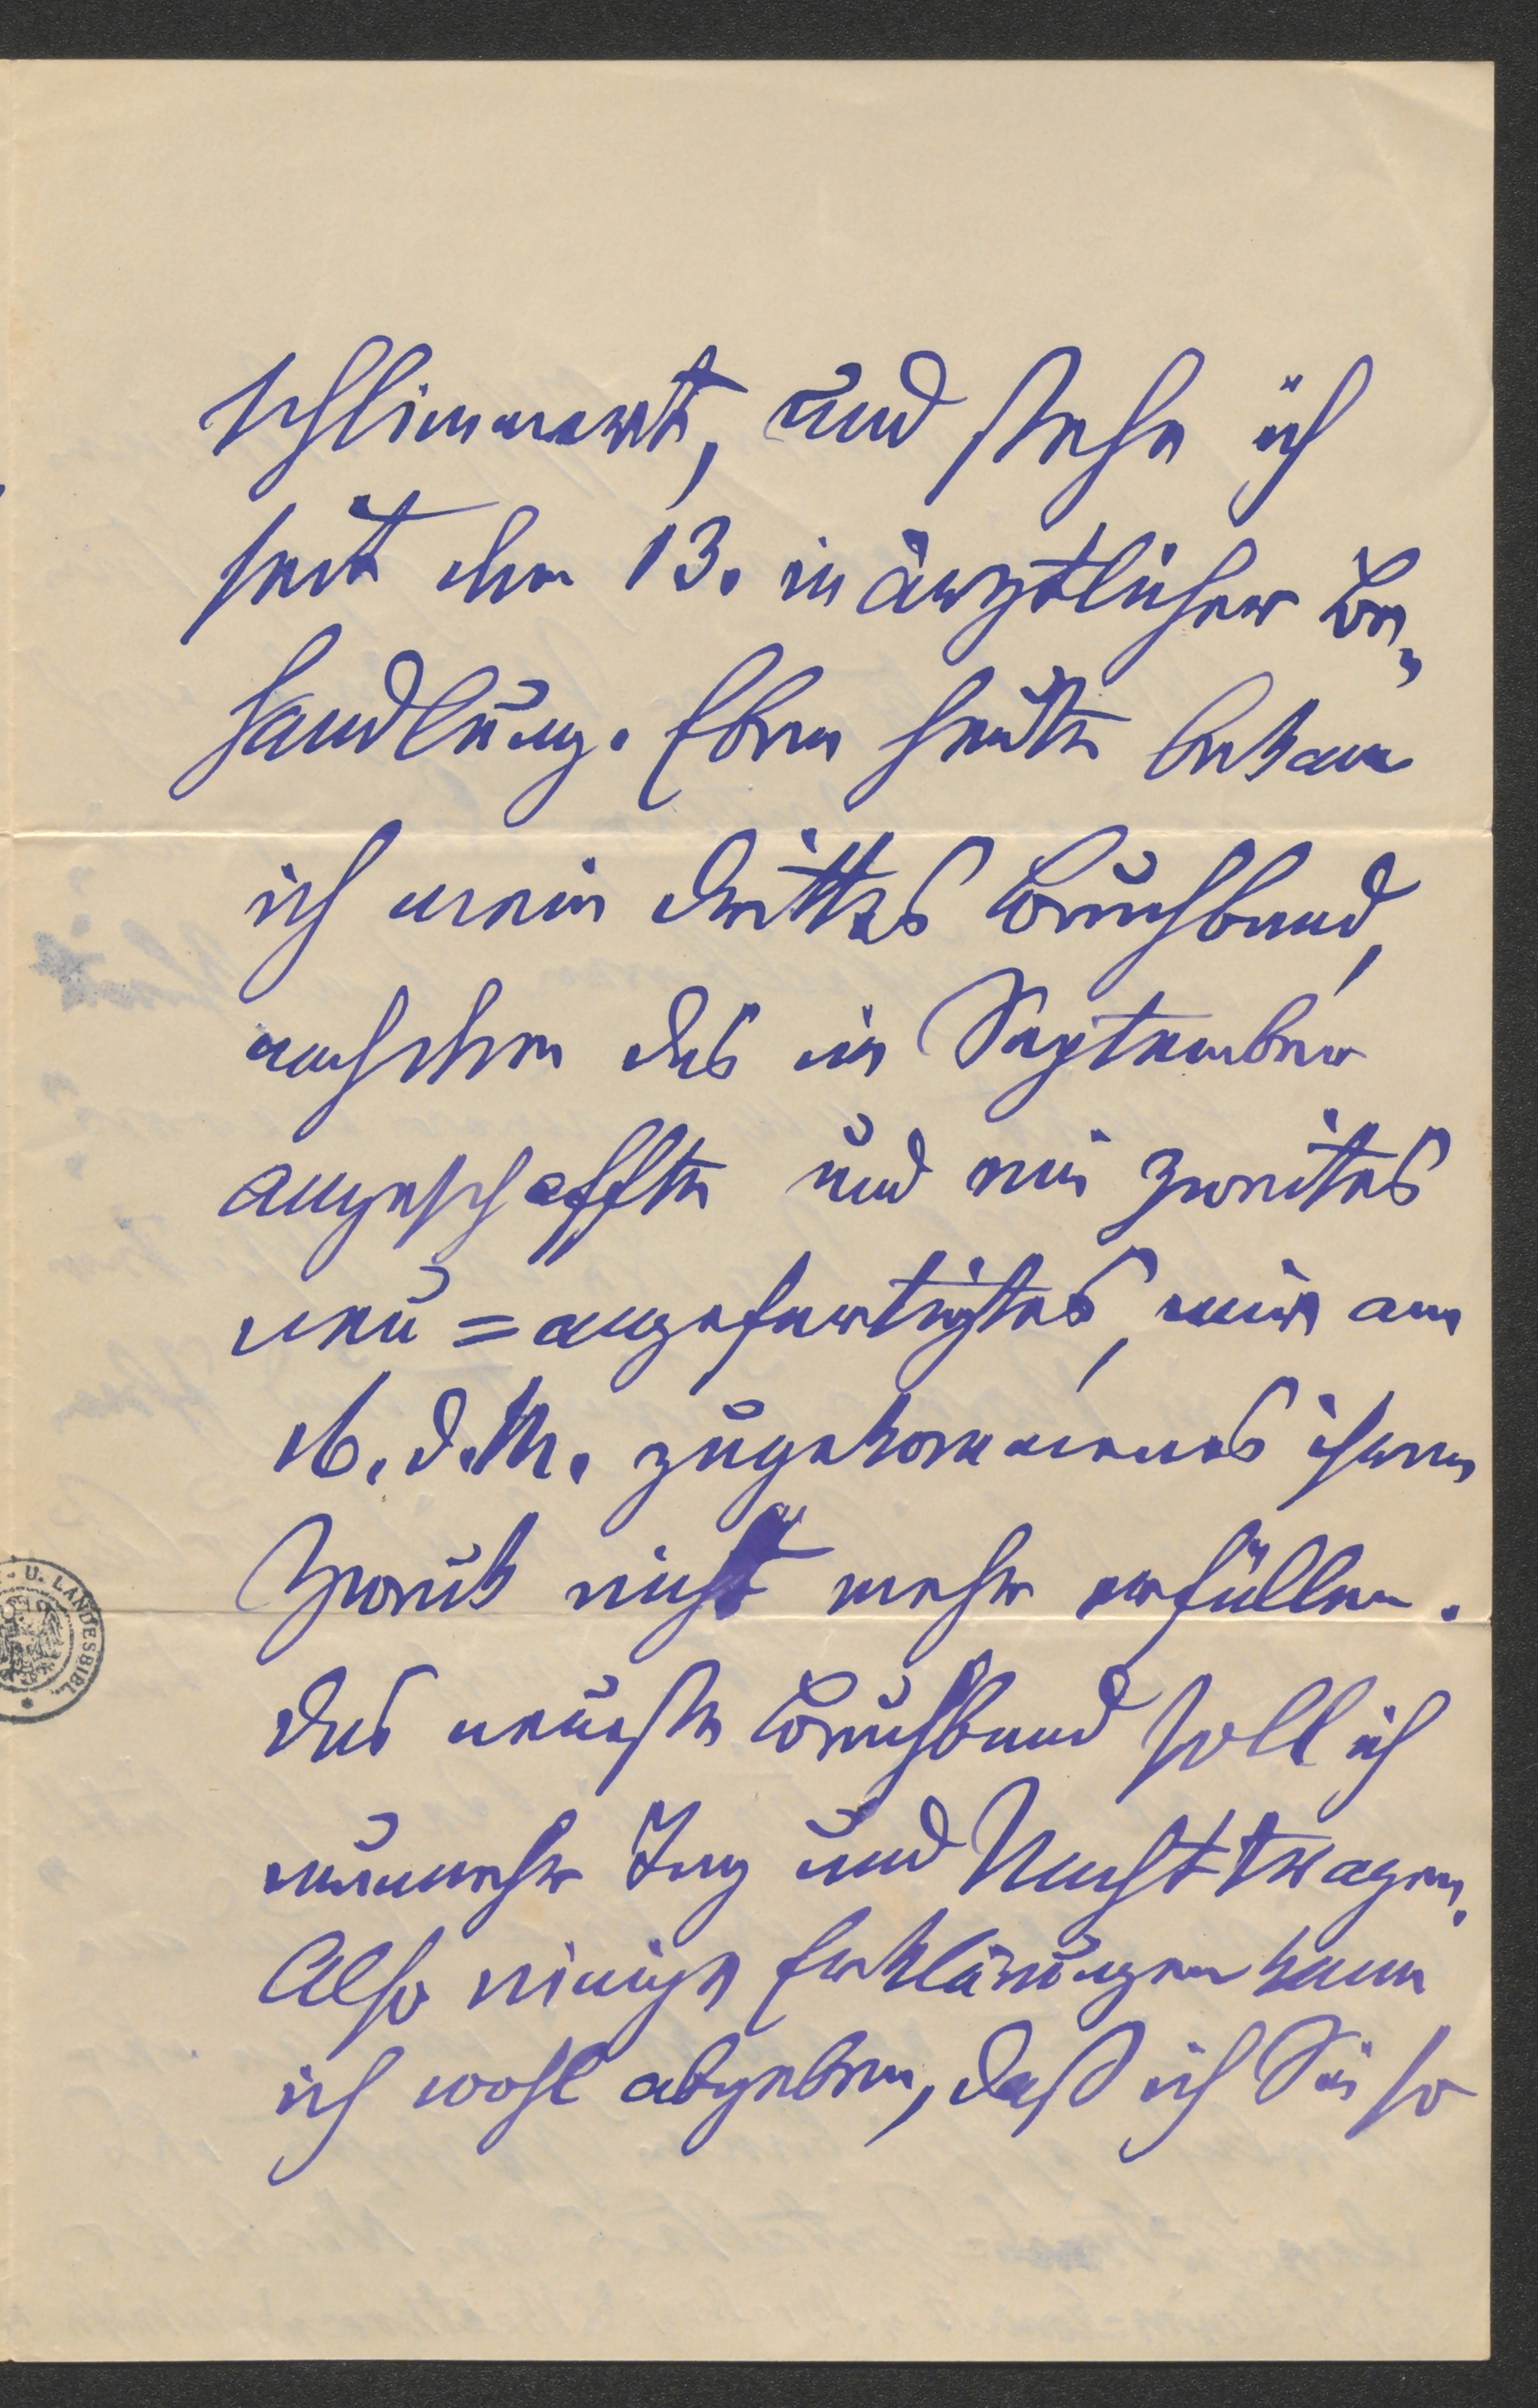 schlimmert, und stehe ich
seit dem 13. in ärztlicher Be-
handlung. Eben heute bekam
ich mein drittes Bruchband,
nachdem das im September
angeschaffte und ein zweites
neu=angefertigtes, mir am
16. d. M. zugekommenes ihren
Zweck nicht mehr erfüllen.
Das neueste Bruchband soll ich
nunmehr Tag und Nacht tragen.
Also einige Erklärungen kann
ich wohl abgeben, daß ich Sie so
U. LANDESBIBL.